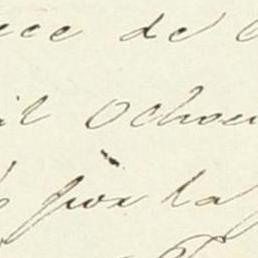 ece de
il Ochoci
por la